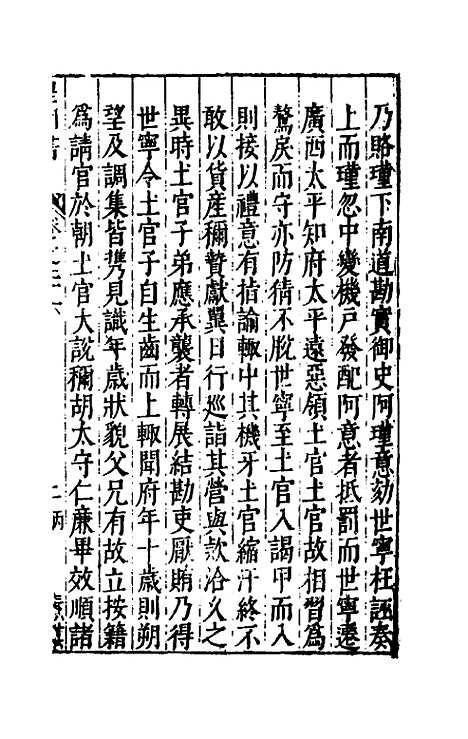 乃賂瑾下南道勘實御史阿瑾意劾世寧枉誣奏
上而瑾忽中變機戶發配阿意者抵罰而世寧遷
廣西太平知府太平遠惡領土官土官故相習爲
驁戾而守亦防猜不脫世寧至土官入謁甲而入
則接以禮意有指諭輙中其機牙土官縮汗終不
敢以貨産稱贄獻異日行巡詣其營與款洽久之
異時土官子弟應承襲者轉展結勘吏厭賄乃得
世寧令土官子自生齒而上輙聞府年十歲則朔
望及調集皆㩗見識年歲狀貌父兄有故立按籍
爲請官於朝土官大說稱胡太守仁廉畢效順諸